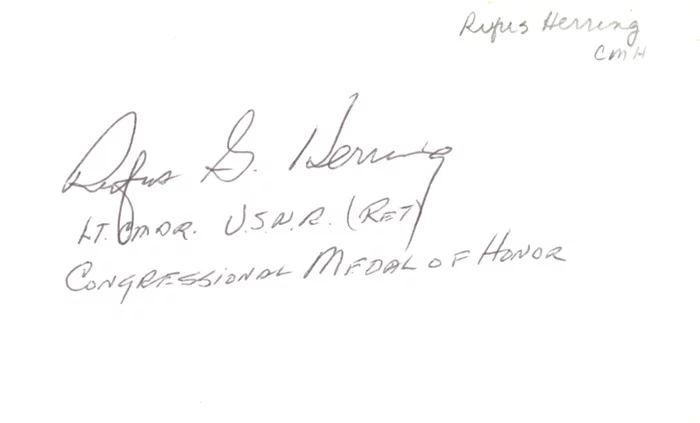 Rufus Herring
CMH
Rufus G. Herring
LT. CMDR. U.S.N.R. (RET)
CONGRESSIONAL MEDAL OF HONOR